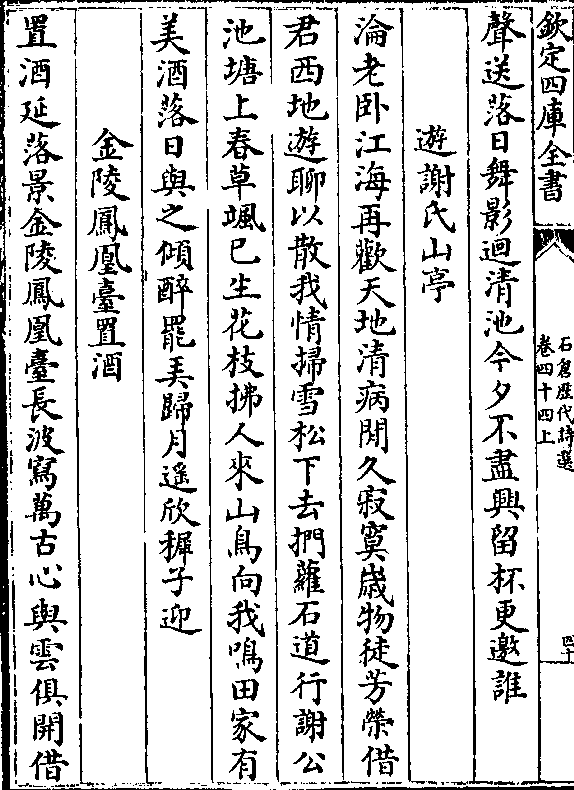 欽定四庫全書
石倉歷代詩選
卷四十四上
四十
聲送落日舞影迴清池今夕不盡興留杯更邀誰
遊謝氏山亭
淪老卧江海再歡天地清病閒久寂寞嵗物徒芳榮借
君西地遊聊以散我情掃雪松下去捫蘿石道行謝公
池塘上春草颯已生花枝拂人來山鳥向我鳴田家有
美酒落日與之傾醉罷弄歸月遥欣穉子迎
金陵鳳凰臺置酒
置酒延落景金陵鳳凰臺長波寫萬古心與雲俱開借